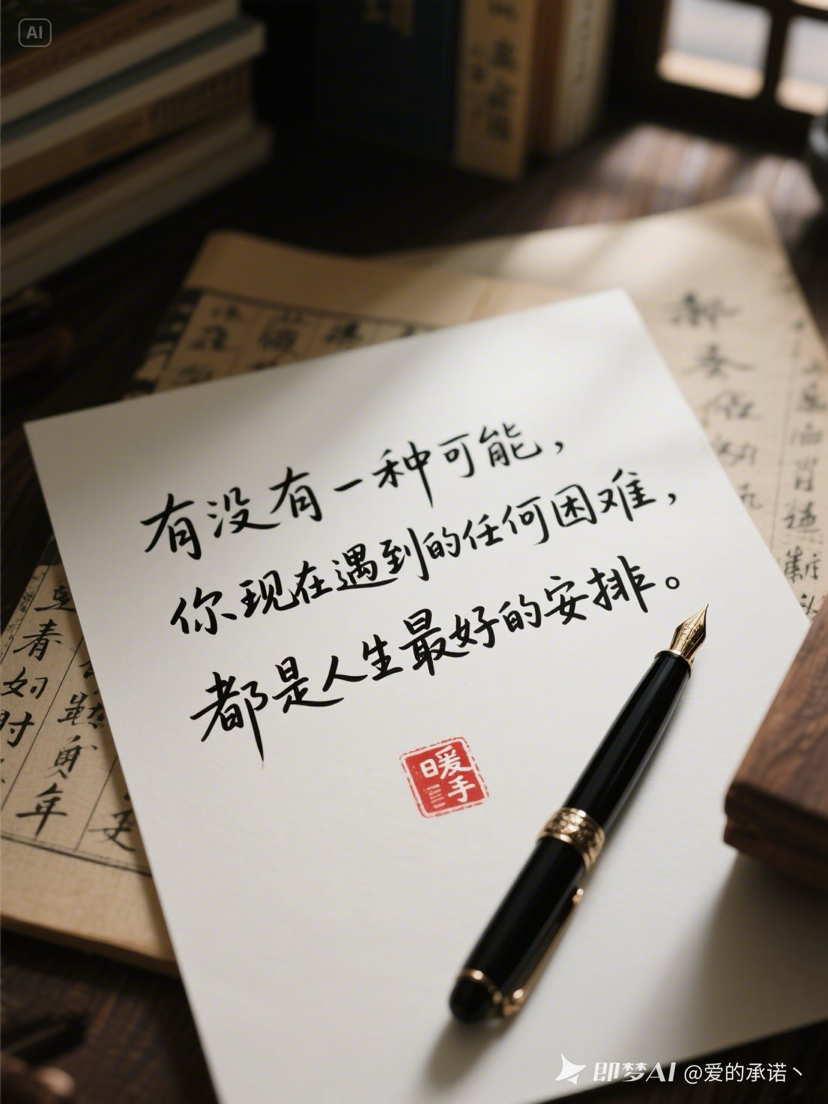 AI
有没有一种可能，
你现在遇到的任何困难，
都是人生最好的安排。
暖手
即梦AI @爱的承诺丶